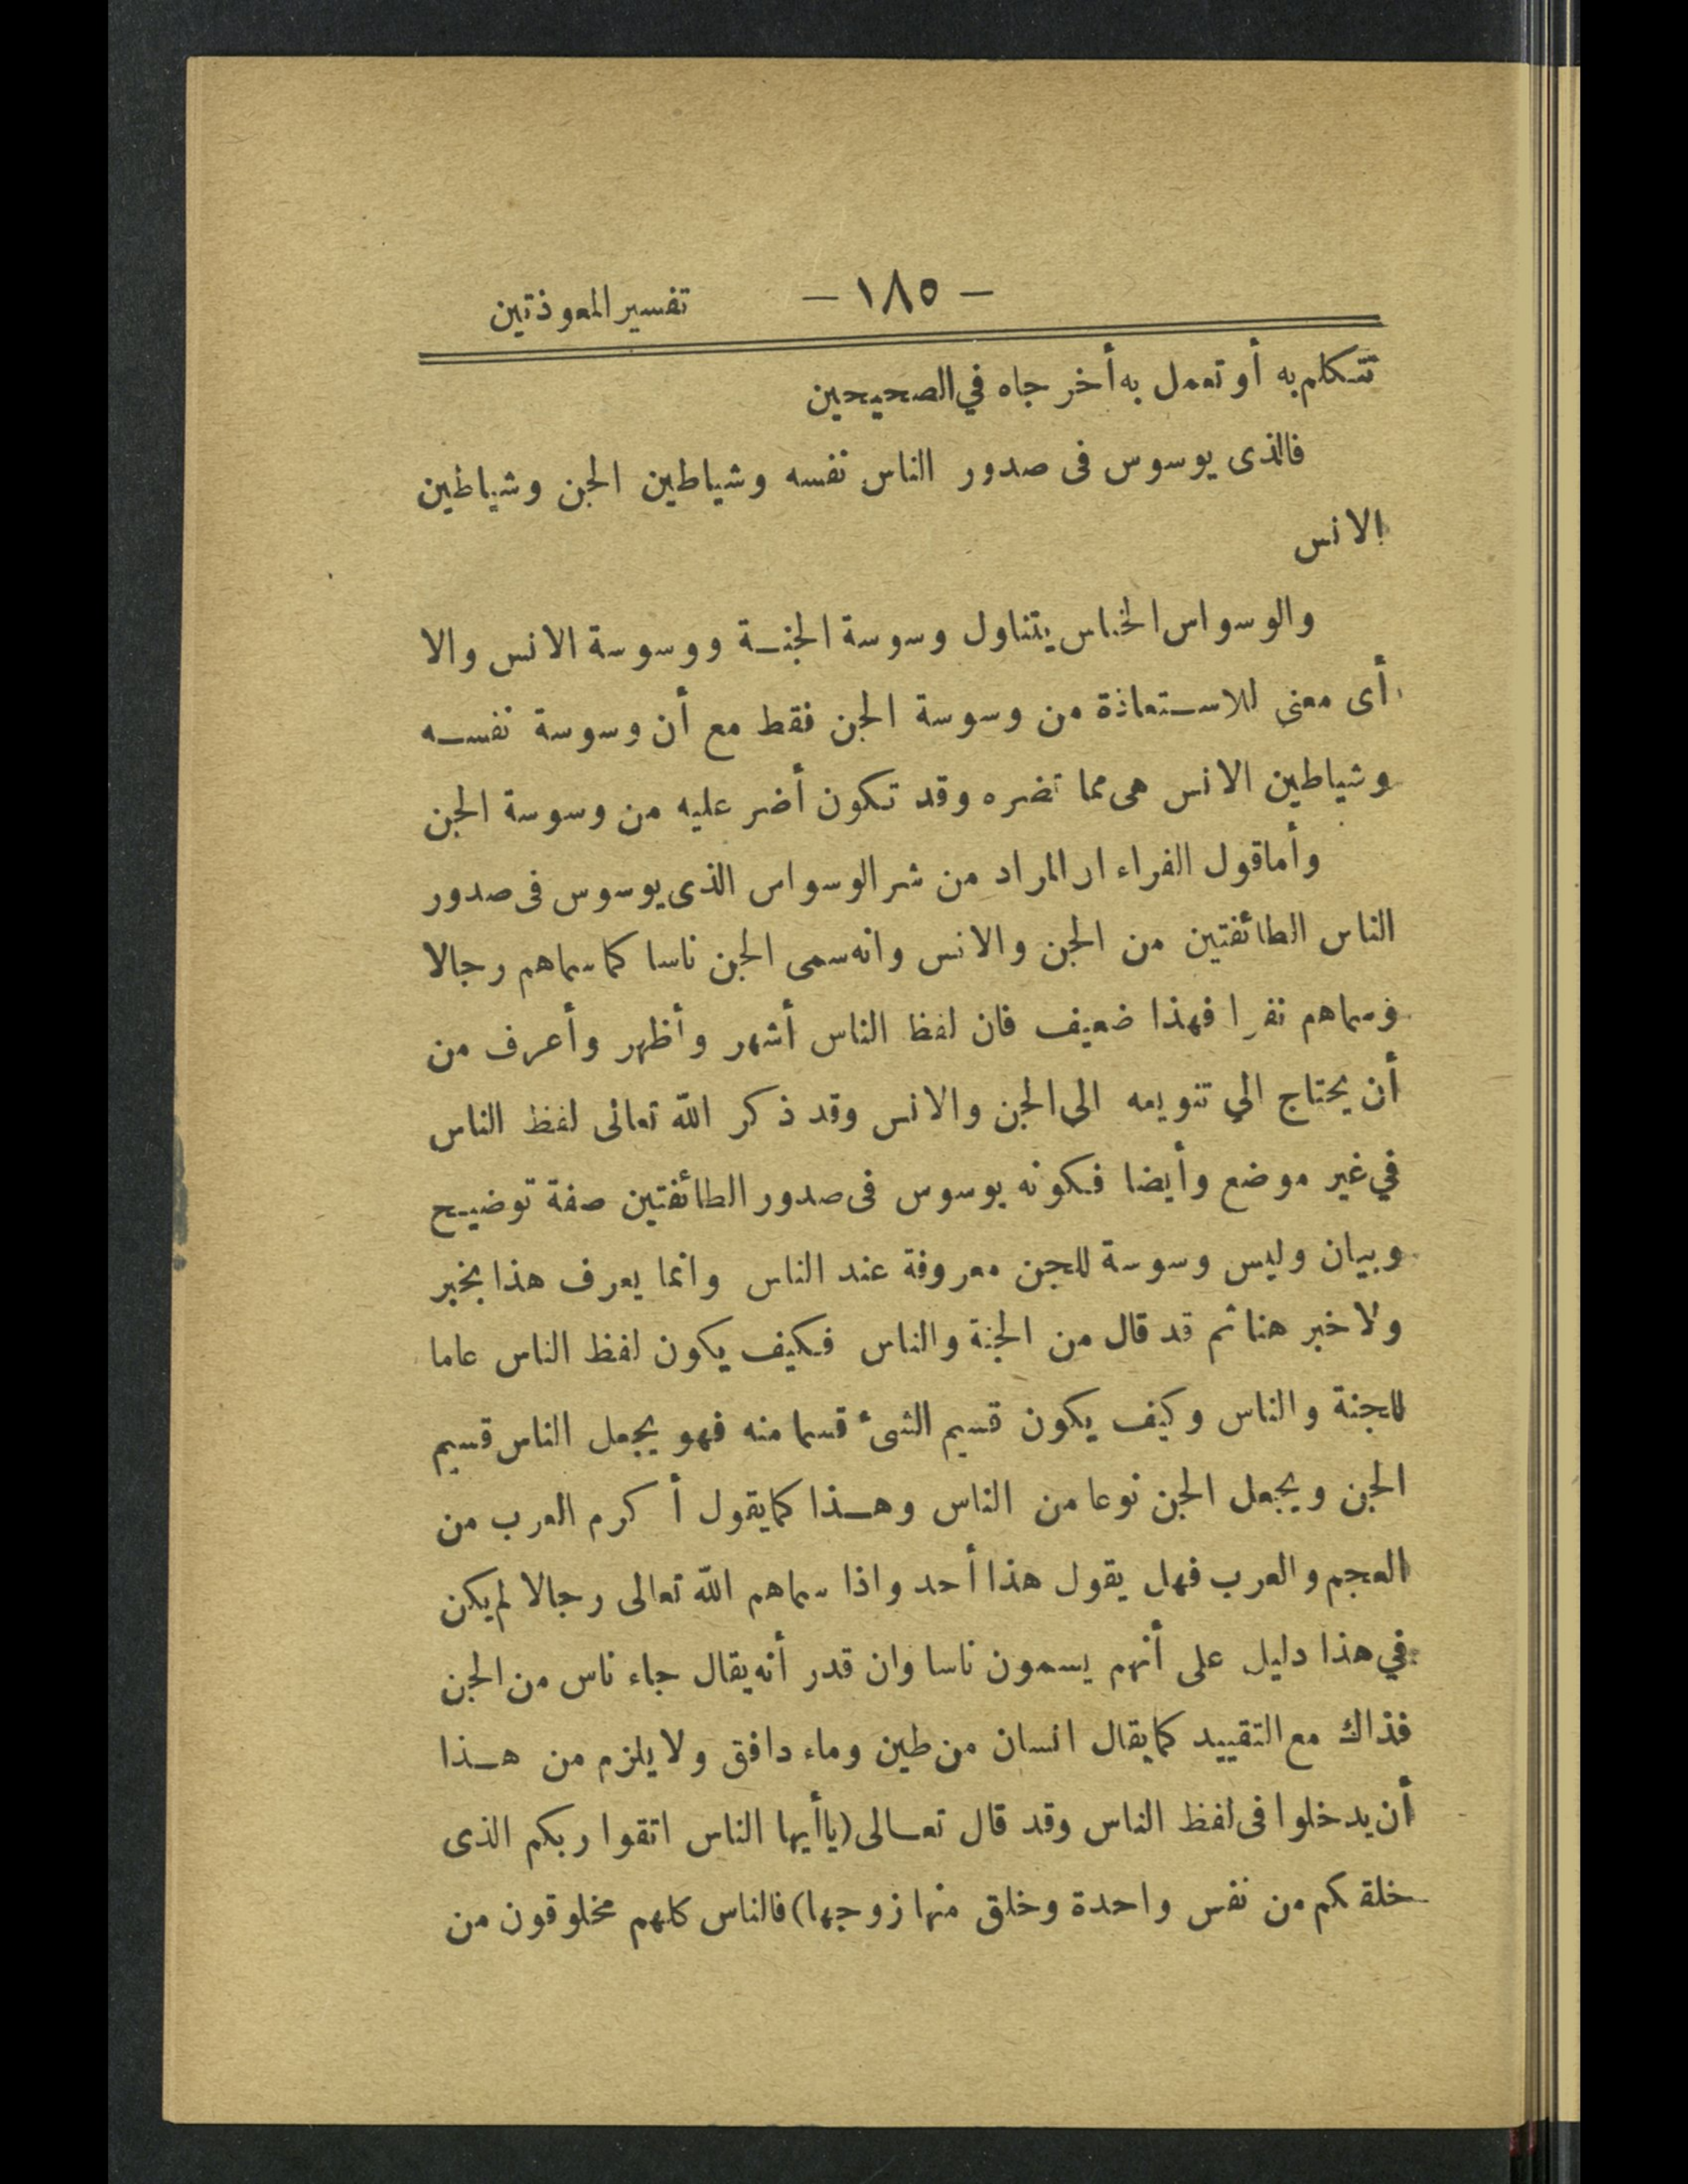 — ١٨٥ — تفسير المعوذتين
تتكلم به أو تعمل به أخرجاه في الصحيحين
فالذى يوسوس فى صدور الناس نفسه وشياطين الجن وشياطين
الانس
والوسواس الخناس يتناول وسوسة الجنة ووسوسة الانس والا
أى معنى للاستعاذة من وسوسة الجن فقط مع أن وسوسة نفسه
وشياطين الانس هى مما تضره وقد تكون أضر عليه من وسوسة الجن
وأما قول الفراء ان المراد من شر الوسواس الذى يوسوس فى صدور
الناس الطائفتين من الجن والانس وانه سمى الجن ناسا كما سماهم رجالا
وسماهم نفرا فهذا ضعيف فان لفظ الناس أشهر وأظهر وأعرف من
أن يحتاج الي تنويعه الى الجن والانس وقد ذكر الله تعالى لفظ الناس
في غير موضع وأيضا فكونه يوسوس فى صدور الطائفتين صفة توضيح
وبيان وليس وسوسة للجن معروفة عند الناس وانما يعرف هذا بخبر
ولا خبر هنا ثم قد قال من الجنة والناس فكيف يكون لفظ الناس عاما
للجنة والناس وكيف يكون قسيم الشىء قسما منه فهو يجعل الناس قسيم
الجن ويجعل الجن نوعا من الناس وهذا كما يقول أكرم العرب من
العجم والعرب فهل يقول هذا أحد واذا سماهم الله تعالى رجالا لم يكن
في هذا دليل على أنهم يسمون ناسا وان قدر أنه يقال جاء ناس من الجن
فذاك مع التقييد كما يقال انسان من طين وماء دافق ولا يلزم من هذا
أن يدخلوا فى لفظ الناس وقد قال تعالى (ياأيها الناس اتقوا ربكم الذى
خلقكم من نفس واحدة وخلق منها زوجها) فالناس كلهم مخلوقون من